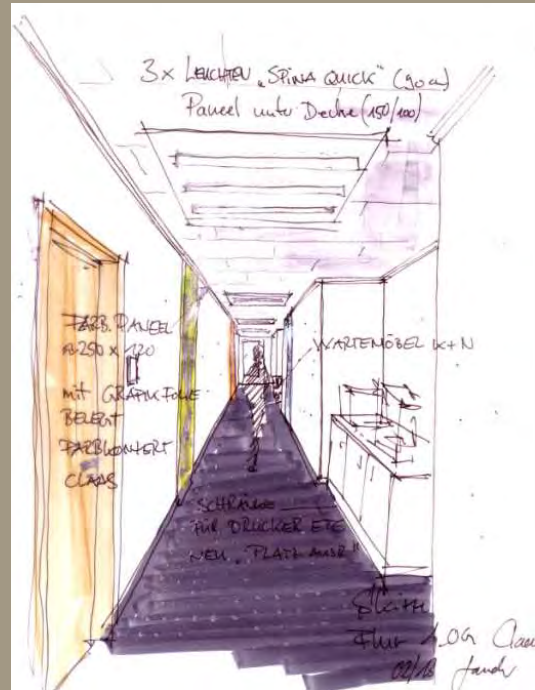 3x LEUCHTEN „SPINA QUICK“ (90cm)
Paneel unter Decke (150/100)
FARB. PANEEL
250 x 120
mit GRAFIKFOLIE
BELEGT
FARBKONZEPT
CLAAS
WARTEMÖBEL K+N
SCHRÄNKE
FÜR DRUCKER ETC
NEU
Skizze
Flur 1.OG Claas
02/13